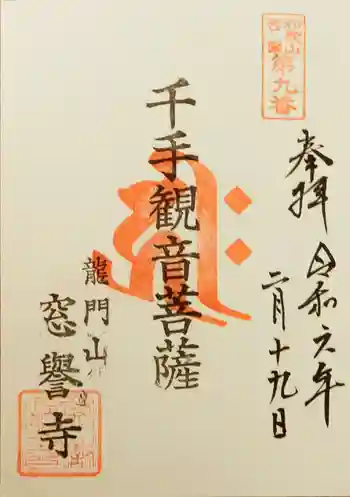 和歌山
西国
第九番
奉拝
令和六年
二月十九日
千手観音菩薩
龍門山
窓誉寺